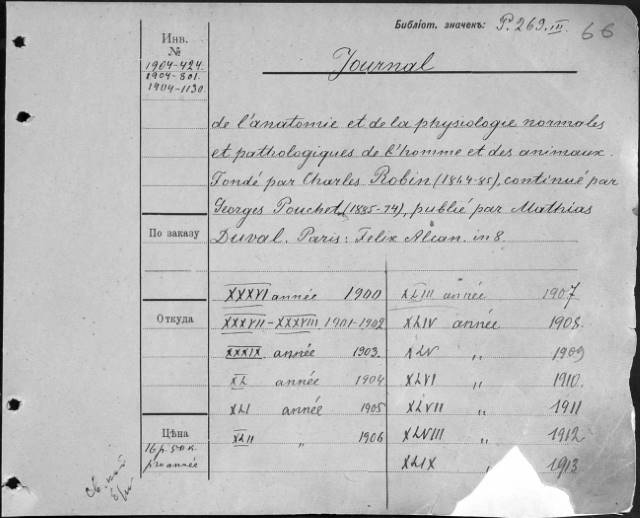 Библіот. значекъ: P. 269. III. 66
Инв.
№
1904-424.
1904-801.
1904-1130.
Journal
de l'anatomie et de la physiologie normales
et pathologiques de l'homme et des animaux.
Fondé par Charles Robin (1864-85), continué par
Georges Pouchet (1885-94), publié par Mathias
По заказу
Duval. Paris: Felix Alcan. in 8.
XXXVI année 1900
XXXVII-XXXVIII 1901-1902
XXXIX année 1903.
XL année 1904
XLI année 1905
XLII „ 1906
XLIII année 1907
XLIV année 1908.
XLV „ 1909
XLVI „ 1910.
XLVII „ 1911
XLVIII „ 1912
XLIX „ 1913
Откуда
Цѣна
16 р. 50 к.
pro année